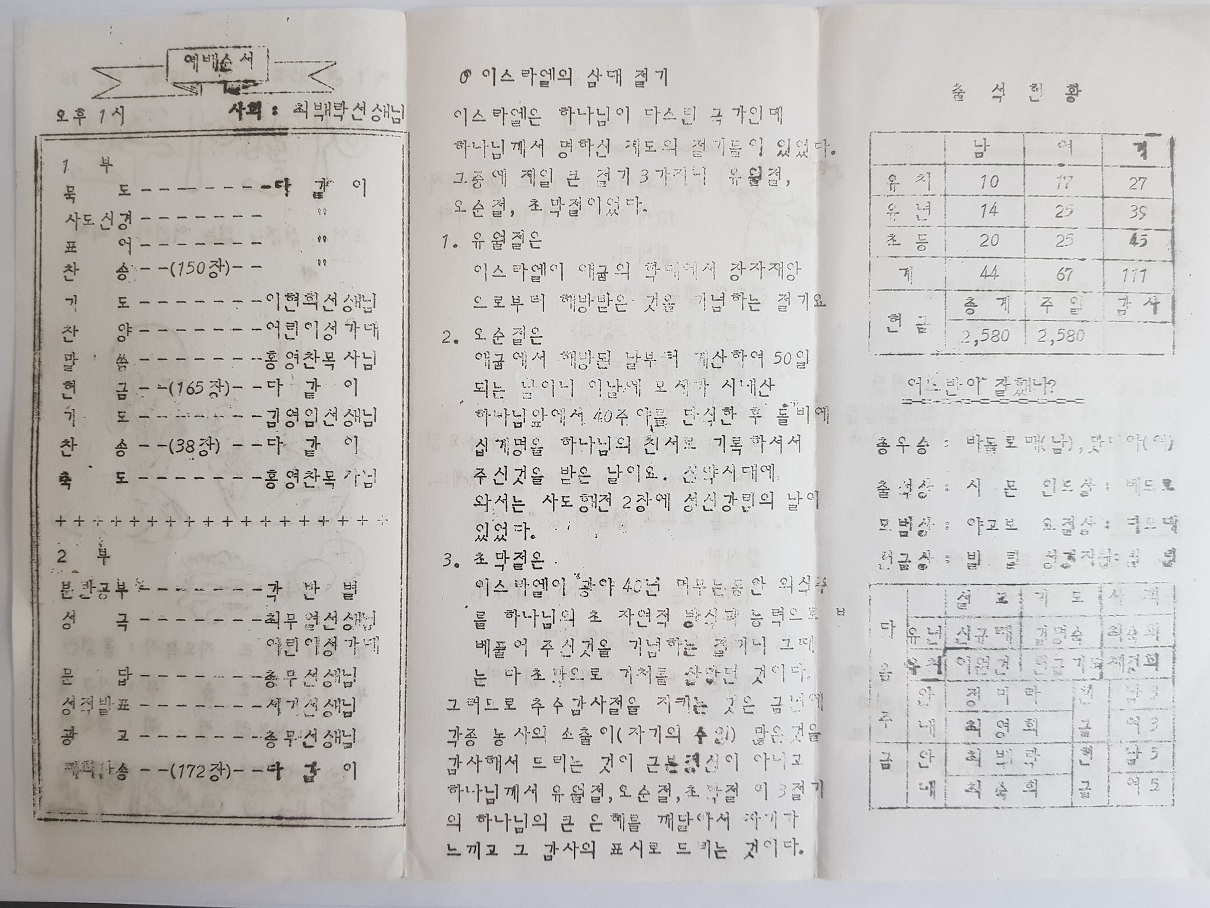 예배순서
오후 1시 사회: 최백락선생님
1 부
묵 도 - - - - - - - - 다 같 이
사도신경 - - - - - - - "
표 어 - - - - - - - "
찬 송 - -(150장)- - "
기 도 - - - - - - - 이현희선생님
찬 양 - - - - - - - 어린이성가대
말 씀 - - - - - - - 홍영찬목사님
헌 금 - -(165장)- - 다 같 이
기 도 - - - - - - - 김영임선생님
찬 송 - -(38장)- - 다 같 이
축 도 - - - - - - - 홍영찬목사님
+ + + + + + + + + + + + + + + + + +
2 부
분반공부 - - - - - - - 각 반 별
성 극 - - - - - - - 최무열선생님
어린이성가대
문 답 - - - - - - - 총무선생님
성적발표 - - - - - - - 서기선생님
광 고 - - - - - - - 총무선생님
송 - -(172장)- - 다 같 이
이스라엘의 삼대 절기
이스라엘은 하나님이 다스린 국가인데
하나님께서 명하신 제도의 절기들이 있었다.
그중에 제일 큰 절기 3가지니 유월절,
오순절, 초막절이었다.
1. 유월절은
이스라엘이 애굽의 학대에서 장자재앙
으로부터 해방받은 것을 기념하는 절기요
2. 오순절은
애굽에서 해방된 날부터 계산하여 50일
되는 날이니 이날에 모세가 시내산
하나님앞에서 40주야를 단식한 후 돌비에
십계명을 하나님의 친서로 기록하셔서
주신것을 받은 날이요. 신약시대에
와서는 사도행전 2장에 성신강림의 날이
있었다.
3. 초막절은
이스라엘이 광야 40년 머무는동안 의식주
를 하나님의 초 자연적 방식과 능력으로
베풀어 주신것을 기념하는 절기니 그때
는 다 초막으로 거처를 삼았던 것이다.
그러므로 추수감사절을 지키는 것은 금년에
각종 농사의 소출이(자기의 수입) 많은것을
감사해서 드리는 것이 근본정신이 아니고
하나님께서 유월절,오순절,초막절 이 3절기
의 하나님의 큰 은혜를 깨달아서 자기가
느끼고 그 감사의 표시로 드리는 것이다.
출 석 현 황
남 여 계
유 치 10 17 27
유 년 14 25 39
초 등 20 25 45
계 44 67 111
헌 금 총 계 주 일 감 사
2,580 2,580
어느반이 잘했나?
총우승 : 바돌로매(남), 맛디아(여)
출석상 : 시 몬 인도상 : 베드로
모범상 : 야고보 요절상 :
헌금상 : 빌 립
다음주 설 교 기 도 사 회
유년 신규대 김명숙
유치 이원건
안 정미락 헌 남3
내 최영희 금 여3
금 안 최백락 헌 남5
내 최숙희 금 여5